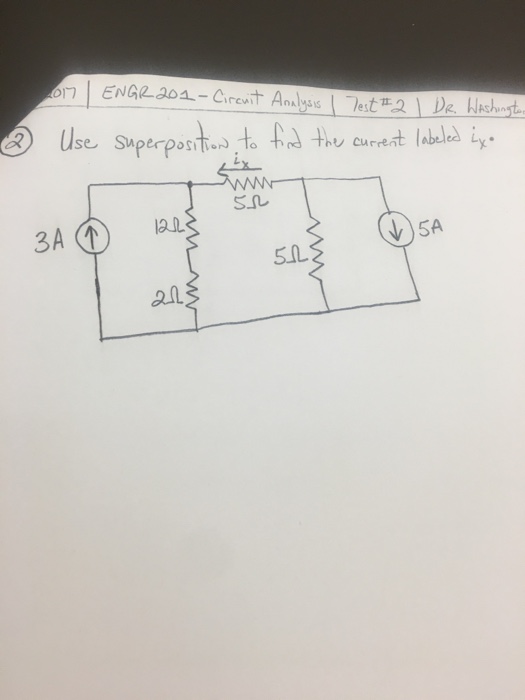 2017 | ENGR 201 - Circuit Analysis | Test #2 | DR. Washington
② Use superposition to find the current labeled ix.
ix
5Ω
12Ω
3A
5A
5Ω
2Ω